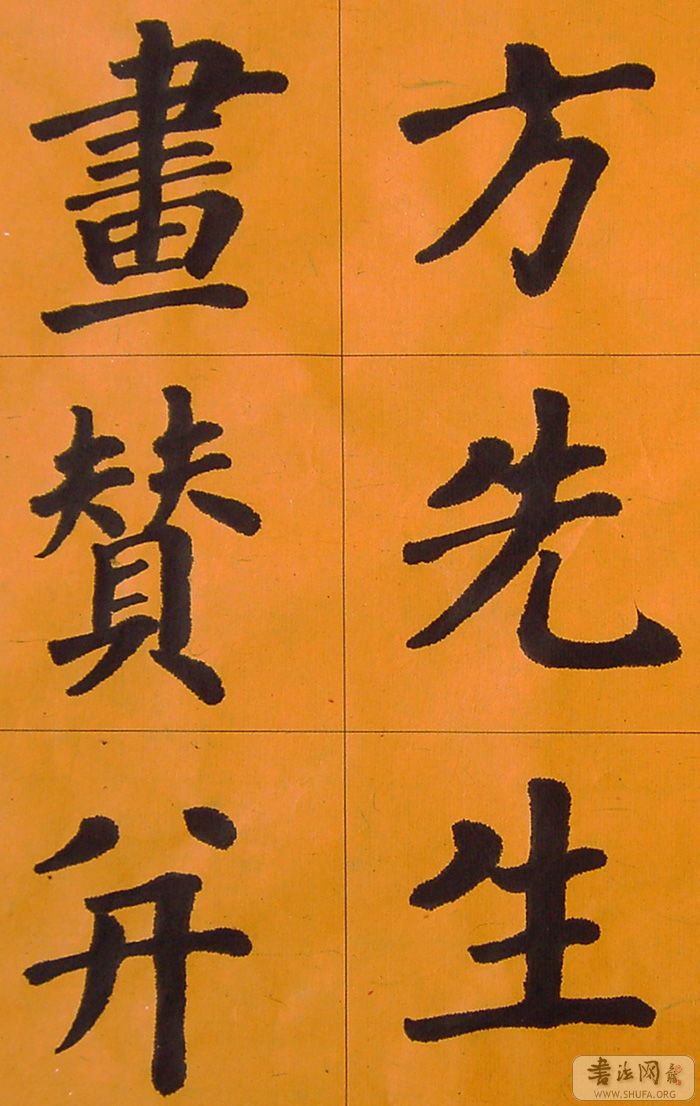 方先生
畫賛并
书法网
WWW.SHUFA.ORG